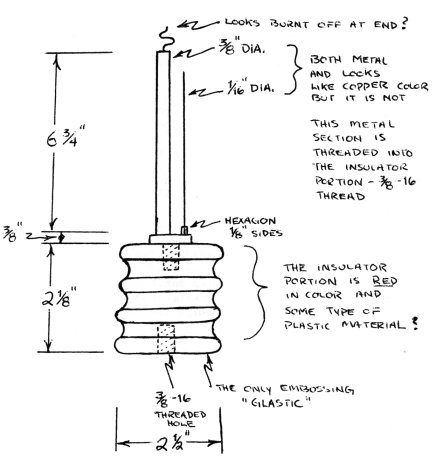 LOOKS BURNT OFF AT END?
3/8" DIA.
1/16" DIA.
BOTH METAL
AND LOOKS
LIKE COPPER COLOR
BUT IT IS NOT
THIS METAL
SECTION IS
THREADED INTO
THE INSULATOR
PORTION - 3/8-16
THREAD
6 3/4"
HEXAGON
1/8" SIDES
3/8"
2 1/8"
THE INSULATOR
PORTION IS RED
IN COLOR AND
SOME TYPE OF
PLASTIC MATERIAL?
3/8-16
THREADED
HOLE
THE ONLY EMBOSSING
"GLASTIC"
2 1/2"